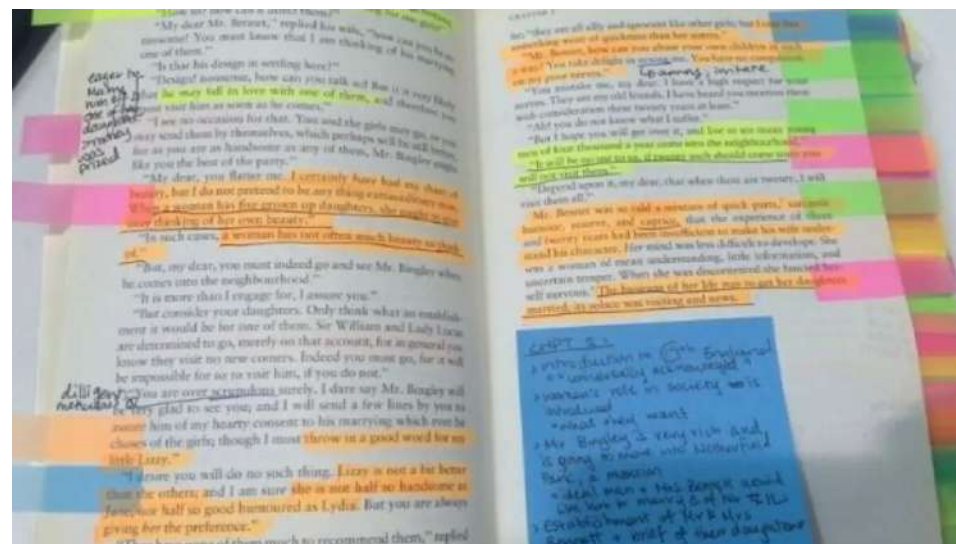 "My dear Mr. Bennet," replied his wife, "how can you be so
tiresome! You must know that I am thinking of his marrying
one of them."
"Is that his design in settling here?"
"Design! nonsense, how can you talk so! But it is very likely
that he may fall in love with one of them, and therefore you
must visit him as soon as he comes."
"I see no occasion for that. You and the girls may go, or you
may send them by themselves, which perhaps will be still better,
for as you are as handsome as any of them, Mr. Bingley might
like you the best of the party."
"My dear, you flatter me. I certainly have had my share of
beauty, but I do not pretend to be any thing extraordinary now.
When a woman has five grown up daughters, she ought to give
over thinking of her own beauty."
"In such cases, a woman has not often much beauty to think
of."
"But, my dear, you must indeed go and see Mr. Bingley when
he comes into the neighbourhood."
"It is more than I engage for, I assure you."
"But consider your daughters. Only think what an establish-
ment it would be for one of them. Sir William and Lady Lucas
are determined to go, merely on that account, for in general you
know they visit no new comers. Indeed you must go, for it will
be impossible for us to visit him, if you do not."
"You are over scrupulous surely. I dare say Mr. Bingley will
be very glad to see you; and I will send a few lines by you to
assure him of my hearty consent to his marrying which ever he
chuses of the girls; though I must throw in a good word for my
little Lizzy."
"I desire you will do no such thing. Lizzy is not a bit better
than the others; and I am sure she is not half so handsome as
Jane, nor half so good humoured as Lydia. But you are always
giving her the preference."
"They have none of them much to recommend them," replied
eager he
one of her
daughters
prized
dilligent
he; "they are all silly and ignorant like other girls; but Lizzy has
something more of quickness than her sisters."
"Mr. Bennet, how can you abuse your own children in such
a way? You take delight in vexing me. You have no compassion
on my poor nerves."
"You mistake me, my dear. I have a high respect for your
nerves. They are my old friends. I have heard you mention them
with consideration these twenty years at least."
"Ah! you do not know what I suffer."
"But I hope you will get over it, and live to see many young
men of four thousand a year come into the neighbourhood."
"It will be no use to us, if twenty such should come since you
will not visit them."
"Depend upon it, my dear, that when there are twenty, I will
visit them all."
Mr. Bennet was so odd a mixture of quick parts, sarcastic
humour, reserve, and caprice, that the experience of three
and twenty years had been insufficient to make his wife under-
stand his character. Her mind was less difficult to develope. She
was a woman of mean understanding, little information, and
uncertain temper. When she was discontented she fancied her-
self nervous. The business of her life was to get her daughters
married; its solace was visiting and news.
introduction to
"universally acknowledged"
woman's role in society is
introduced
what they want
Mr Bingley is very rich and
is going to move into Netherfield
Parc, a mansion
Establishment of Mr & Mrs
Bennett + brief of their daughters